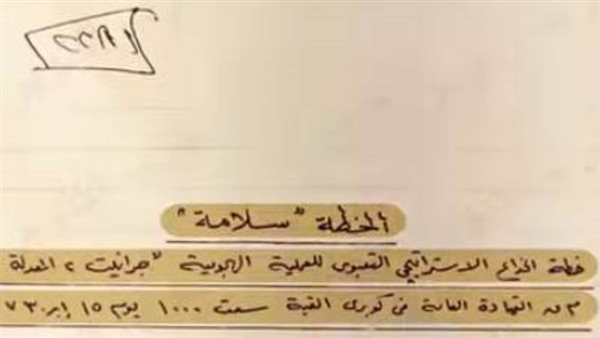 الخطة "سلامة"
خطة الخداع الاستراتيجي التعبوى للعملية الهجومية "جرانيت ٢ المعدلة
م ق القيادة العامة فى كوبرى القبة سعت ١٠٠٠ يوم ١٥ إبريل ٧٣